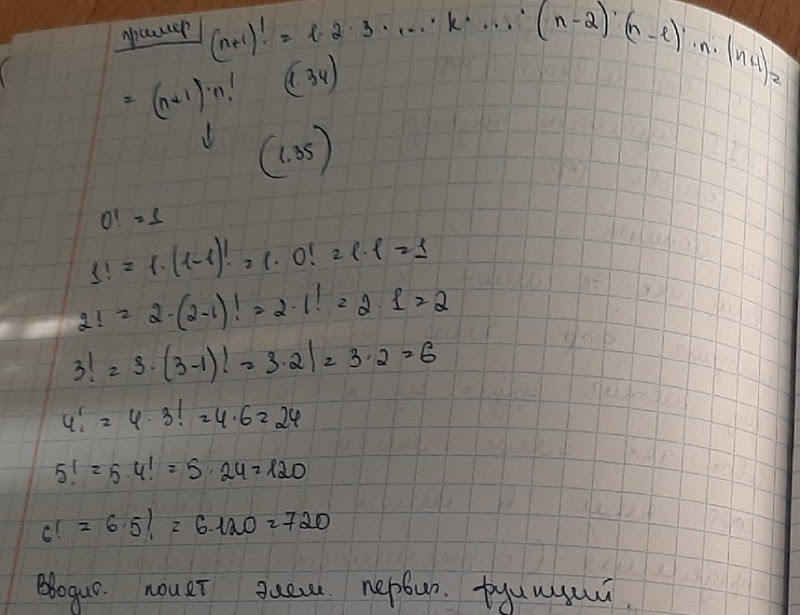 пример (n+1)! = 1·2·3·...·k·...·(n-2)·(n-1)·n·(n+1)=
= (n+1)·n! (1.34)
↓ (1.35)
0! = 1
1! = 1·(1-1)! = 1·0! = 1·1 = 1
2! = 2·(2-1)! = 2·1! = 2·1 = 2
3! = 3·(3-1)! = 3·2! = 3·2 = 6
4! = 4·3! = 4·6 = 24
5! = 5·4! = 5·24 = 120
6! = 6·5! = 6·120 = 720
Вводит. понят элем. первич. функций